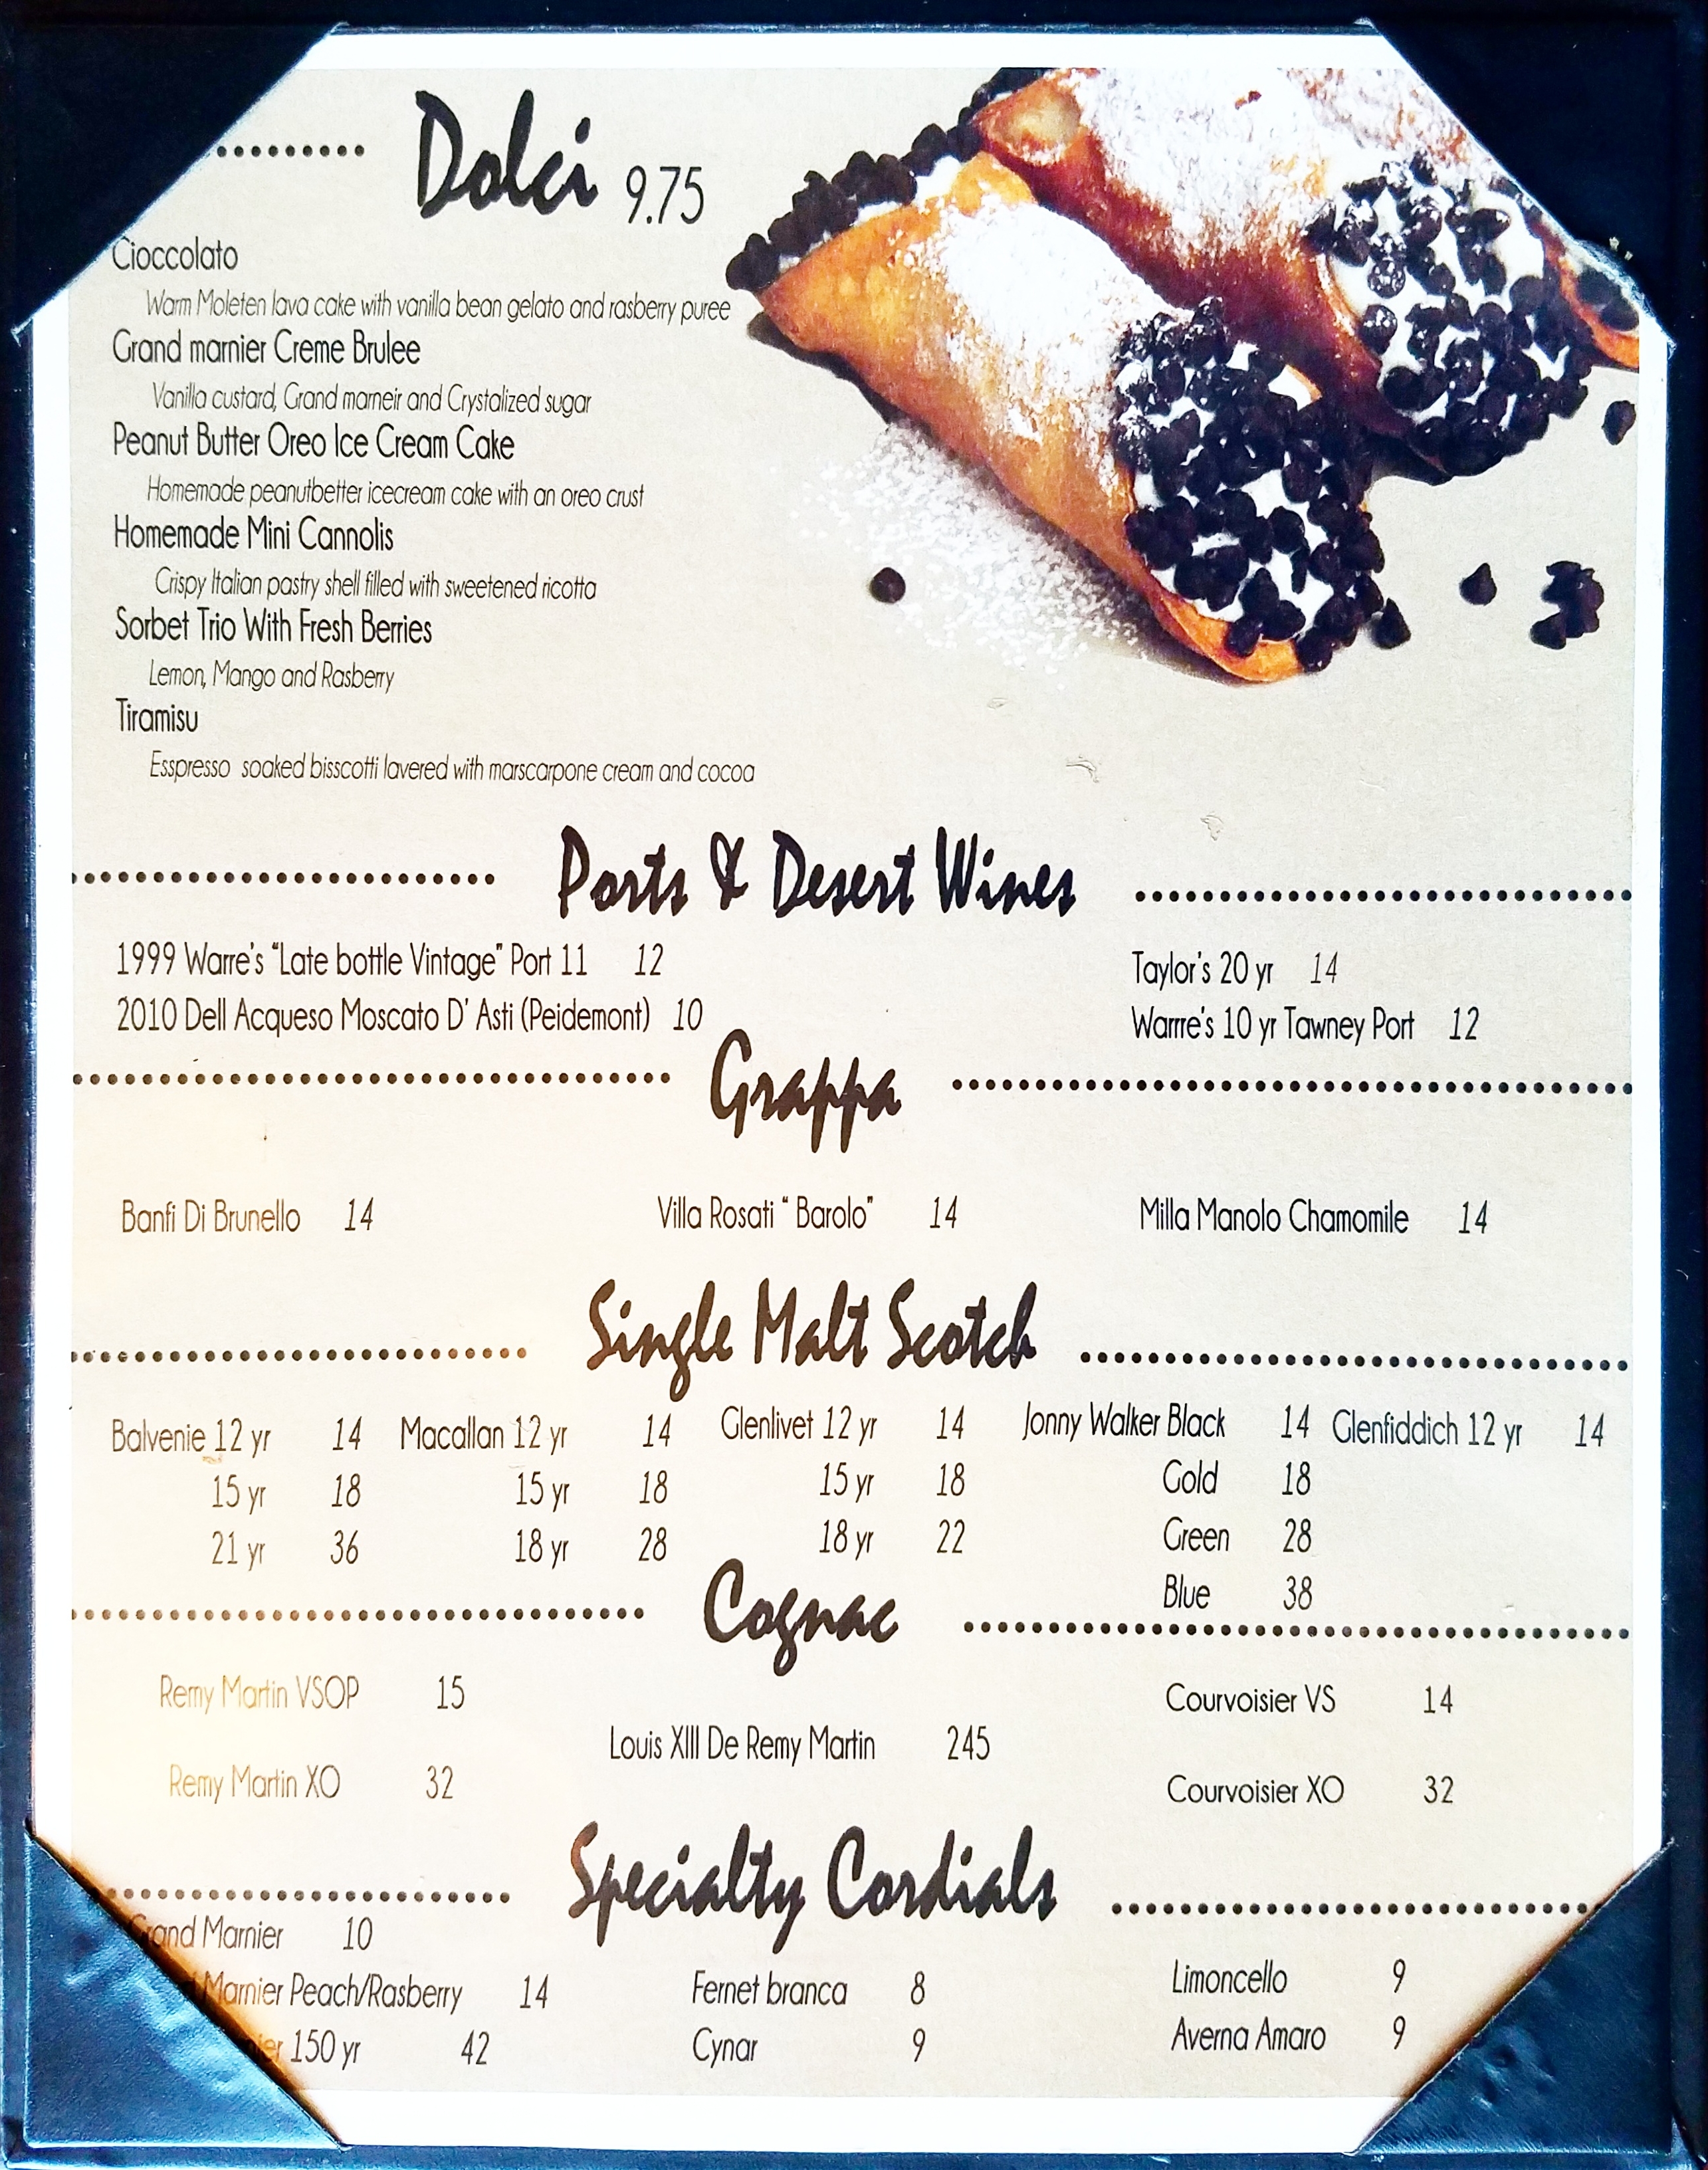 Dolci 9.75
Cioccolato
Warm Moleten lava cake with vanilla bean gelato and rasberry puree
Grand marnier Creme Brulee
Vanilla custard, Grand marneir and Crystalized sugar
Peanut Butter Oreo Ice Cream Cake
Homemade peanutbetter icecream cake with an oreo crust
Homemade Mini Cannolis
Crispy Italian pastry shell filled with sweetened ricotta
Sorbet Trio With Fresh Berries
Lemon, Mango and Rasberry
Tiramisu
Esspresso soaked bisscotti lavered with marscarpone cream and cocoa
Ports & Desert Wines
1999 Warre's "Late bottle Vintage" Port 11 12
Taylor's 20 yr 14
2010 Dell Acqueso Moscato D' Asti (Peidemont) 10
Warrre's 10 yr Tawney Port 12
Grappa
Banfi Di Brunello 14 Villa Rosati " Barolo" 14 Milla Manolo Chamomile 14
Single Malt Scotch
Balvenie 12 yr 14 Macallan 12 yr 14 Glenlivet 12 yr 14 Jonny Walker Black 14 Glenfiddich 12 yr 14
15 yr 18 15 yr 18 15 yr 18 Gold 18
21 yr 36 18 yr 28 18 yr 22 Green 28
Blue 38
Cognac
Remy Martin VSOP 15 Courvoisier VS 14
Louis XIII De Remy Martin 245
Remy Martin XO 32 Courvoisier XO 32
Specialty Cordials
Grand Marnier 10
Marnier Peach/Rasberry 14 Fernet branca 8 Limoncello 9
150 yr 42 Cynar 9 Averna Amaro 9